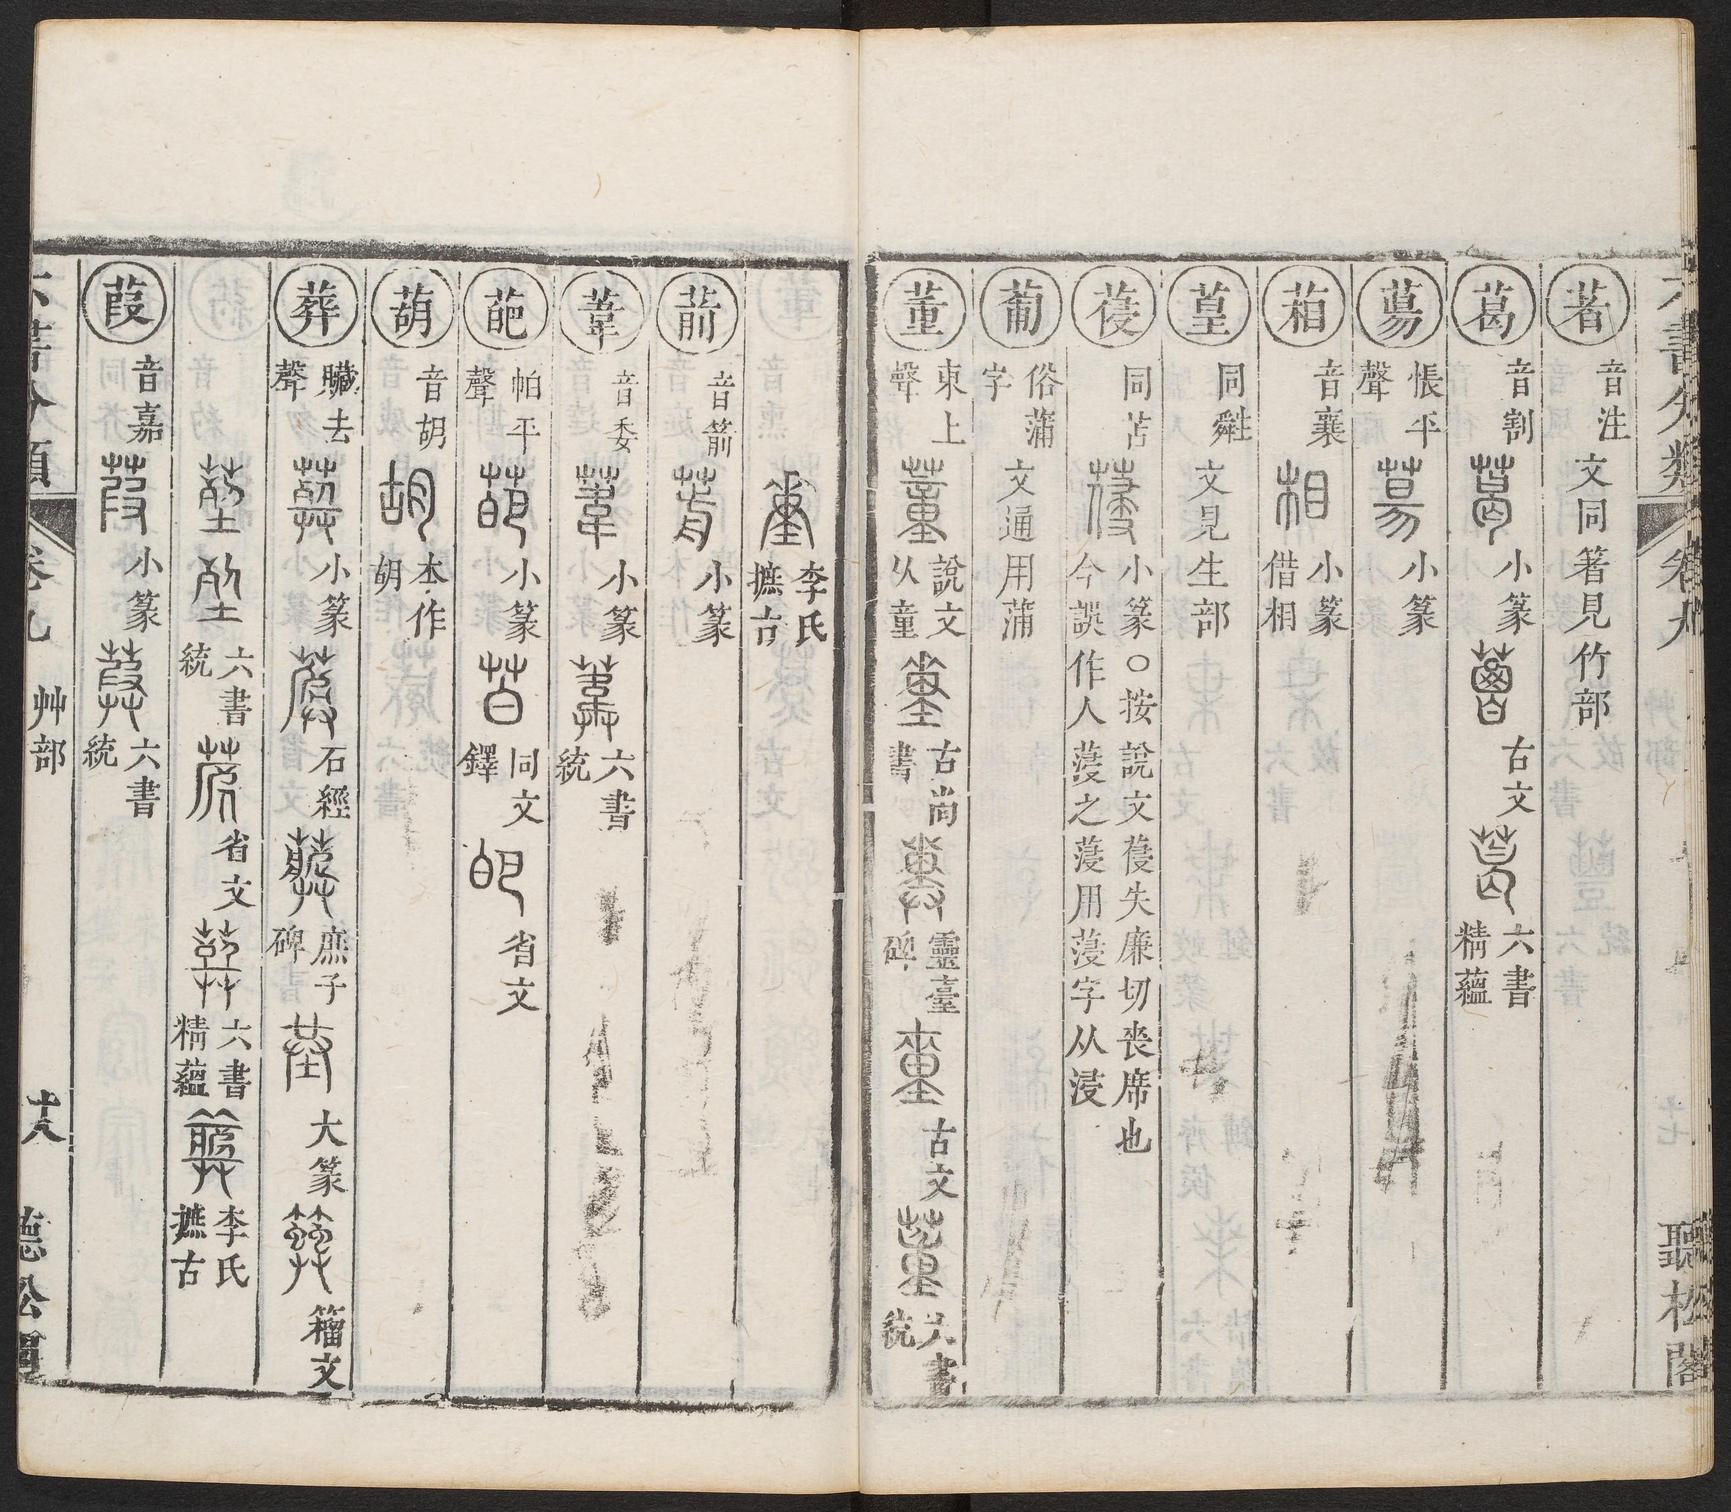 六書分類 卷九 聽松閣
著 音注 文同著見竹部
葛 音割 葛 小篆 古文 六書精蘊
蕩 帳平聲 小篆
葙 音襄 小篆借相
葟 同䑞 文見生部
葠 同苫 小篆○按說文葠失廉切喪席也今誤作人蓡之蓡用蓡字从浸
葡 俗蒲字 文通用蒲
董 東上聲 說文从童 古尚書 靈臺碑 古文 六書統
李氏摭古
葥 音箭 小篆
葦 音委 小篆 六書統
葩 帕平聲 小篆 同文鐸 省文
葫 音胡 本作胡
葬 臟去聲 小篆 石經 庶子碑 大篆 籀文
六書統 省文 六書精蘊 李氏摭古
葭 音嘉 小篆 六書統
六書分類 卷九 艸部 十八 聽松閣